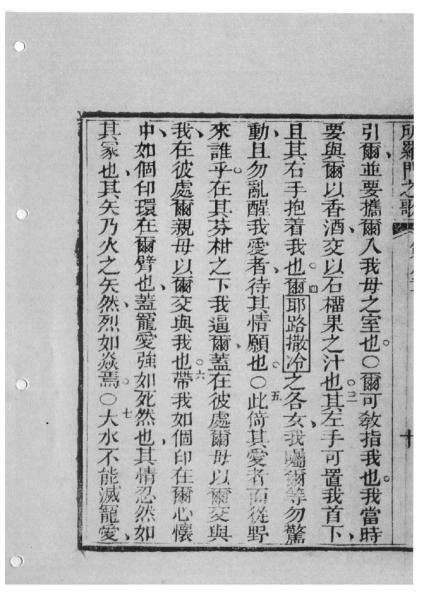 所羅門之歌
十
引爾並要攜爾入我母之室也〇爾可教指我也我當時
要與爾以香酒交以石橊果之汁也其左手可置我首下
且其右手抱着我也爾耶路撒冷之各女我囑爾等勿驚
動且勿亂醒我愛者待其情願也〇此倚其愛者而從野
來誰乎在其芬柑之下我逼爾蓋在彼處爾母以爾交與
我在彼處爾親母以爾交與我也帶我如個印在爾心懷
中如個印環在爾臂也蓋寵愛強如死然也其情忍然如
其冢也其矢乃火之矢然烈如焱焉〇大水不能滅寵愛
二
四
五
六
七